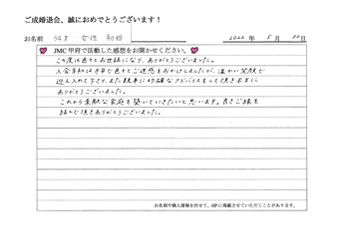 ご成婚退会、誠におめでとうございます！
お名前 34才 女性 初婚 2022年 5月 30日
JMC甲府で活動した感想をお聞かせください。
この度は色々とお世話になり、ありがとうございました。
入会当初は不安で色々とご迷惑をおかけしましたが、温かい笑顔で
迎え入れて下さり、また親身に的確なアドバイスをして頂き本当に
ありがとうございました。
これから素敵な家庭を築いていきたいと思います。良きご縁を
結んで頂きありがとうございました。
お名前や個人情報を伏せて、HPに掲載させていただくことがあります。